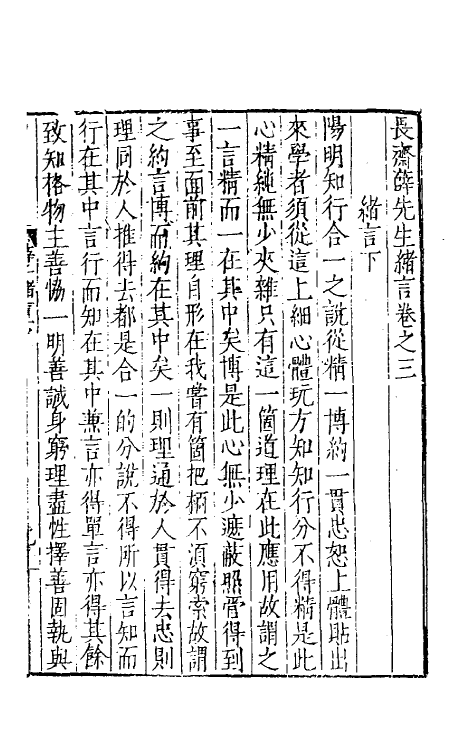 長齋薛先生緒言卷之三
緒言下
陽明知行合一之說從精一博約一貫忠恕上體貼出
來學者須從這上細心體玩方知知行分不得精是此
心精純無少夾雜只有這一箇道理在此應用故謂之
一言精而一在其中矣博是此心無少遮蔽照管得到
事至面前其理自形在我嘗有箇把柄不湏窮索故謂
之約言博而約在其中矣一則理通於人貫得去忠則
理同於人推得去都是合一的分說不得所以言知而
行在其中言行而知在其中兼言亦得單言亦得其餘
致知格物主善恊一明善誠身窮理盡性擇善固執與